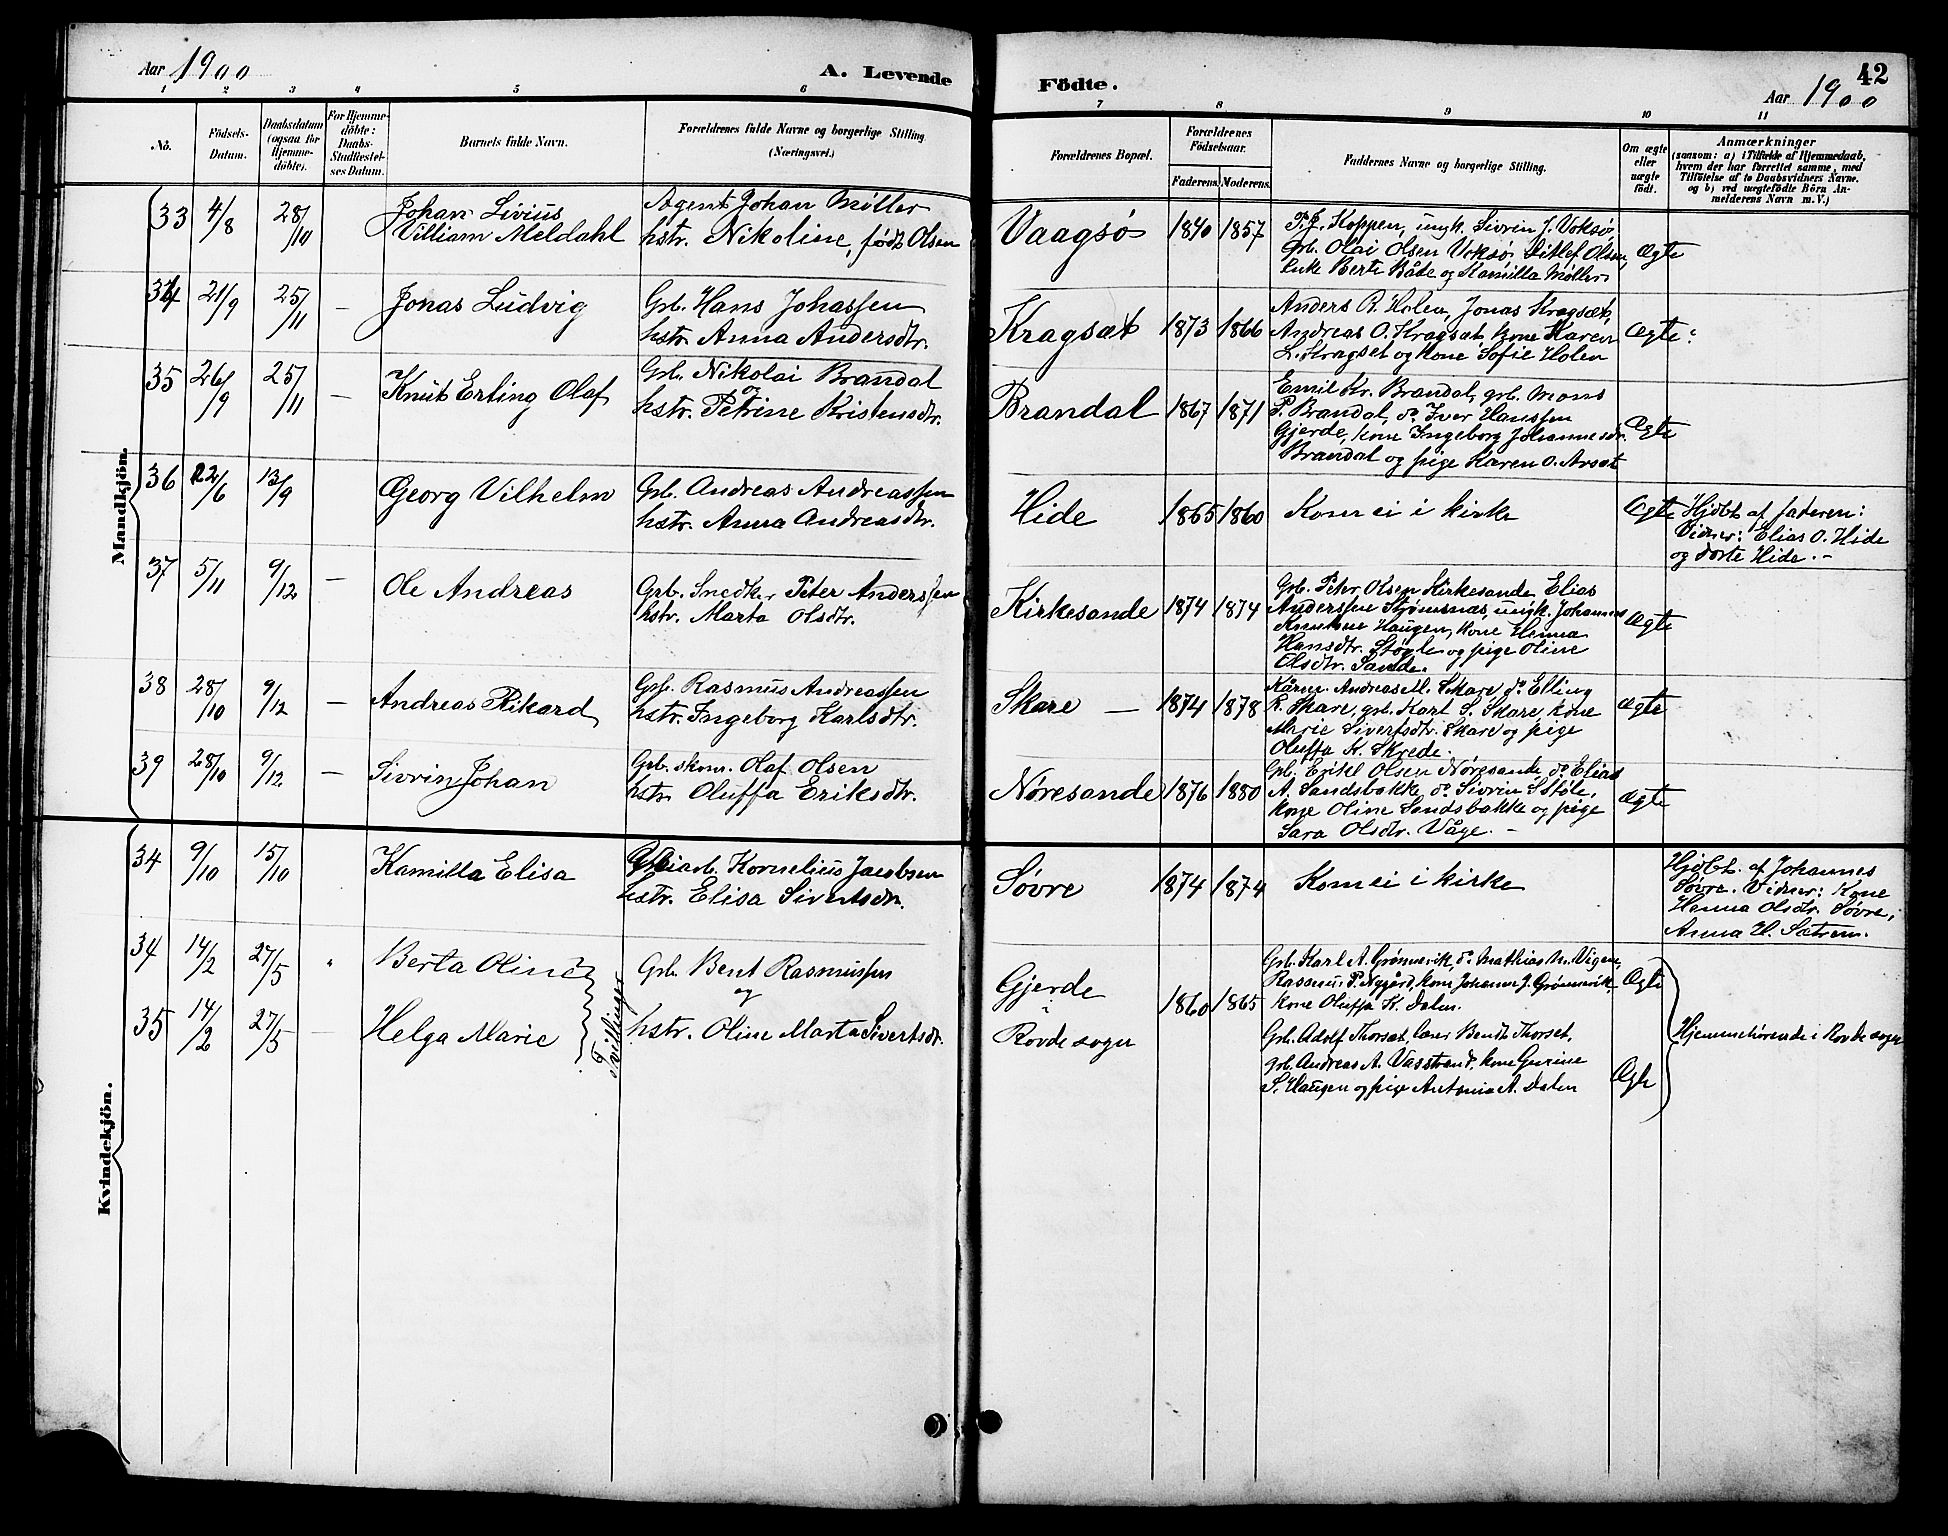 Aar 1900
A. Levende
Födte.
42
Aar 1900
1 2 3 4 5 6 7 8 9 10 11
No.
Födsels-
Datum.
Daabsdatum
(ogsaa for
Hjemme-
döbte).
For Hjemme-
döbte:
Daabs-
Stadfæstel-
ses Datum.
Barnets fulde Navn.
Forældrenes fulde Navne og borgerlige Stilling.
(Næringsvei.)
Forældrenes Bopæl.
Forældrenes
Födselsaar.
Faderens. Moderens.
Faddernes Navne og borgerlige Stilling.
Om ægte
eller
uægte
födt.
Anmærkninger
(saasom: a) i Tilfælde af Hjemmedaab,
hvem der har forrettet samme, med
Tilföielse af to Daabsvidners Navne.
og b) ved uægtefödte Börn An-
melderens Navn m. V.)
Mandkjön.
33 4/8 28/10 Johan Livius
Villiam Meldahl
Agent Johan Møller
hstr. Nikoline, født Olsen
Vaagsø 1840 1857
P. J. Koppen, ungk. Sivrin J. Voksø
grb. Olai Olsen Voksø Ditlef Olsen,
Enke Berte Både og Kamilla Møller
Ægte
34 21/9 25/11 — Jonas Ludvig
Grb. Hans Johassen
hstr. Anna Andersdtr.
Kragsæt 1873 1866
Anders R. Holen, Jonas Kragsæt,
Andreas O. Kragsæt, kone Karen
L. Kragset og kone Sofie Holen
Ægte
35 26/9 25/11 — Knut Erling Olaf
Grb. Nikolai Brandal
og
hstr. Petrine Kristensdtr.
Brandal 1867 1871
Emil Kr. Brandal, grb. Mons
P. Brandal, do Iver Hanssen
Gjerde, kone Ingeborg Johannesdr.
Brandal og pige Karen O. Arset
Ægte
36 22/6 13/9 Georg Vilhelm
Grb. Andreas Andreassen
hstr. Anna Andreasdtr.
Hide 1865 1860 Kom ei i kirke
Ægte
Hjdbt. af faderen:
Vidner: Elias O. Hide
og Dorte Hide. -
37 5/11 9/12 — Ole Andreas
Grb. Snedker Peter Anderssen
hstr. Marta Olsdtr.
Kirkesande 1874 1874
Grb. Peter Olsen Kirkesande Elias
Anderssen Strømsnæs, ungk. Johannes
Knutsen Haugen, kone Henna
Hansdtr. Støyle og pige Oline
Olsdtr. Sande.
Ægte
38 28/10 9/12 — Andreas Rikard
Grf. Rasmus Andreassen
hstr. Ingeborg Karlsdtr.
Skare — 1874 1878
Kårm. Andreas M. Skare do Elling
R. Skare, grb. Karl S. Skare, kone
Marie Sivertsdtr. Skare og pige
Oluffa K. Skrede.
Ægte
39 28/10 9/12 — Sivrin Johan
Grb. skom. Olaf Olsen
hstr. Oluffa Eriksdtr.
Nøresande 1876 1880
Grb. Erikl Olsen Nøresande, do Elias
A. Sandsbakke do Sivrin S Støle,
kone Oline Sandsbakke og pige
Sara Olsdtr. Våge. -
Ægte
Kvindekjön.
34 9/10 15/10 Kamilla Elisa
Kornelius Jacobsen
hstr. Elisa Sivertsdtr.
Søvre 1874 1874 Kom ei i kirke
Hjdbt. af Johannes
Søvre. Vidner: Kone
Henna Olsdtr. Søvre,
Anna H. Sætrem.
34 14/2 27/5 " Berta Oline
35 14/2 27/5 — Helga Marie
Tvillinger
Grb. Bent Rasmussen
og
hstr. Oline Marta Sivertsdr.
Gjerde
i
Rovde sogn
1860 1865
Grb. Karl A. Grønnevik, do Mathias M. Vigen,
Rasmus P. Nygård, kone Johanne J. Grønnevik
kone Oluffa K. Dalen.
Ægte
Grb. Adolf Thorset, lærer Bendt Thorset,
grb. Andreas A. Vasstrand, kone Gurine
S. Haugen og pige Antonia A. Dalen
Ægte
Hjemmehørende i Rovde sogn